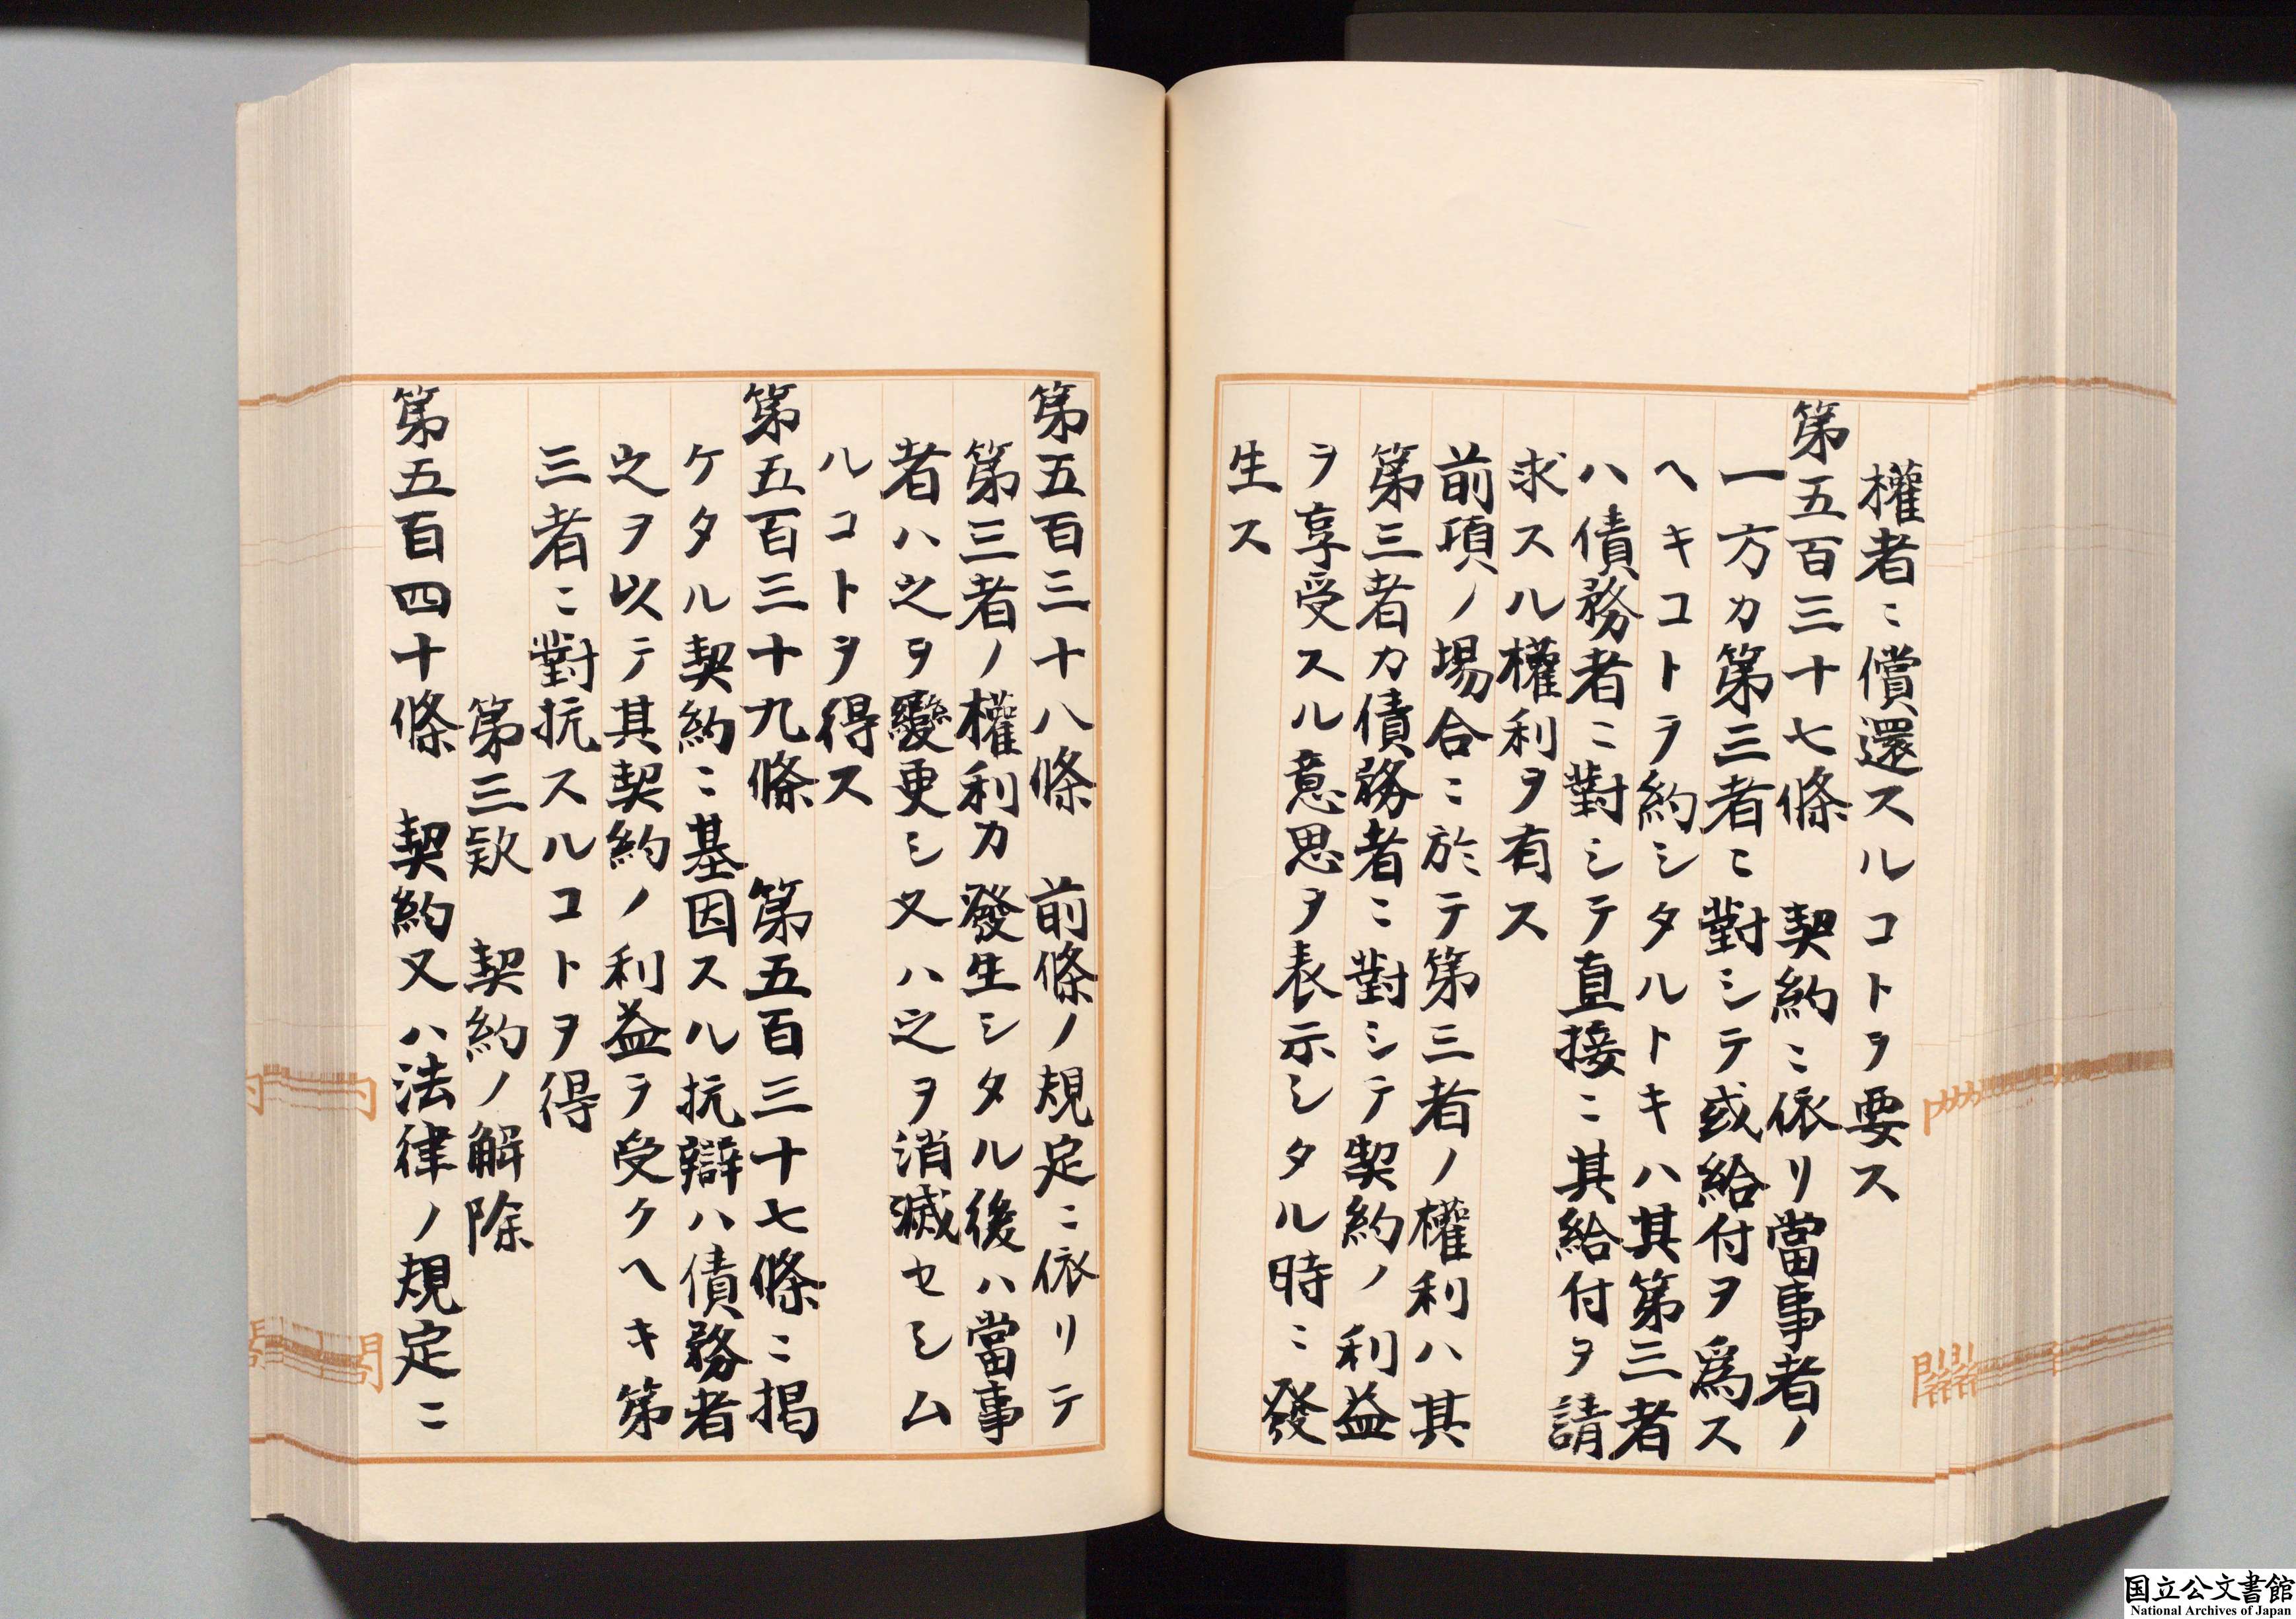 權者ニ償還スルコトヲ要ス
第五百三十七條　契約ニ依リ當事者ノ
一方カ第三者ニ對シテ或給付ヲ爲ス
ヘキコトヲ約シタルトキハ其第三者
ハ債務者ニ對シテ直接ニ其給付ヲ請
求スル權利ヲ有ス
前項ノ場合ニ於テ第三者ノ權利ハ其
第三者カ債務者ニ對シテ契約ノ利益
ヲ享受スル意思ヲ表示シタル時ニ發
生ス
第五百三十八條　前條ノ規定ニ依リテ
第三者ノ權利カ發生シタル後ハ當事
者ハ之ヲ變更シ又ハ之ヲ消滅セシム
ルコトヲ得ス
第五百三十九條　第五百三十七條ニ揭
ケタル契約ニ基因スル抗辯ハ債務者
之ヲ以テ其契約ノ利益ヲ受クヘキ第
三者ニ對抗スルコトヲ得
第三款　契約ノ解除
第五百四十條　契約又ハ法律ノ規定ニ
国立公文書館
National Archives of Japan